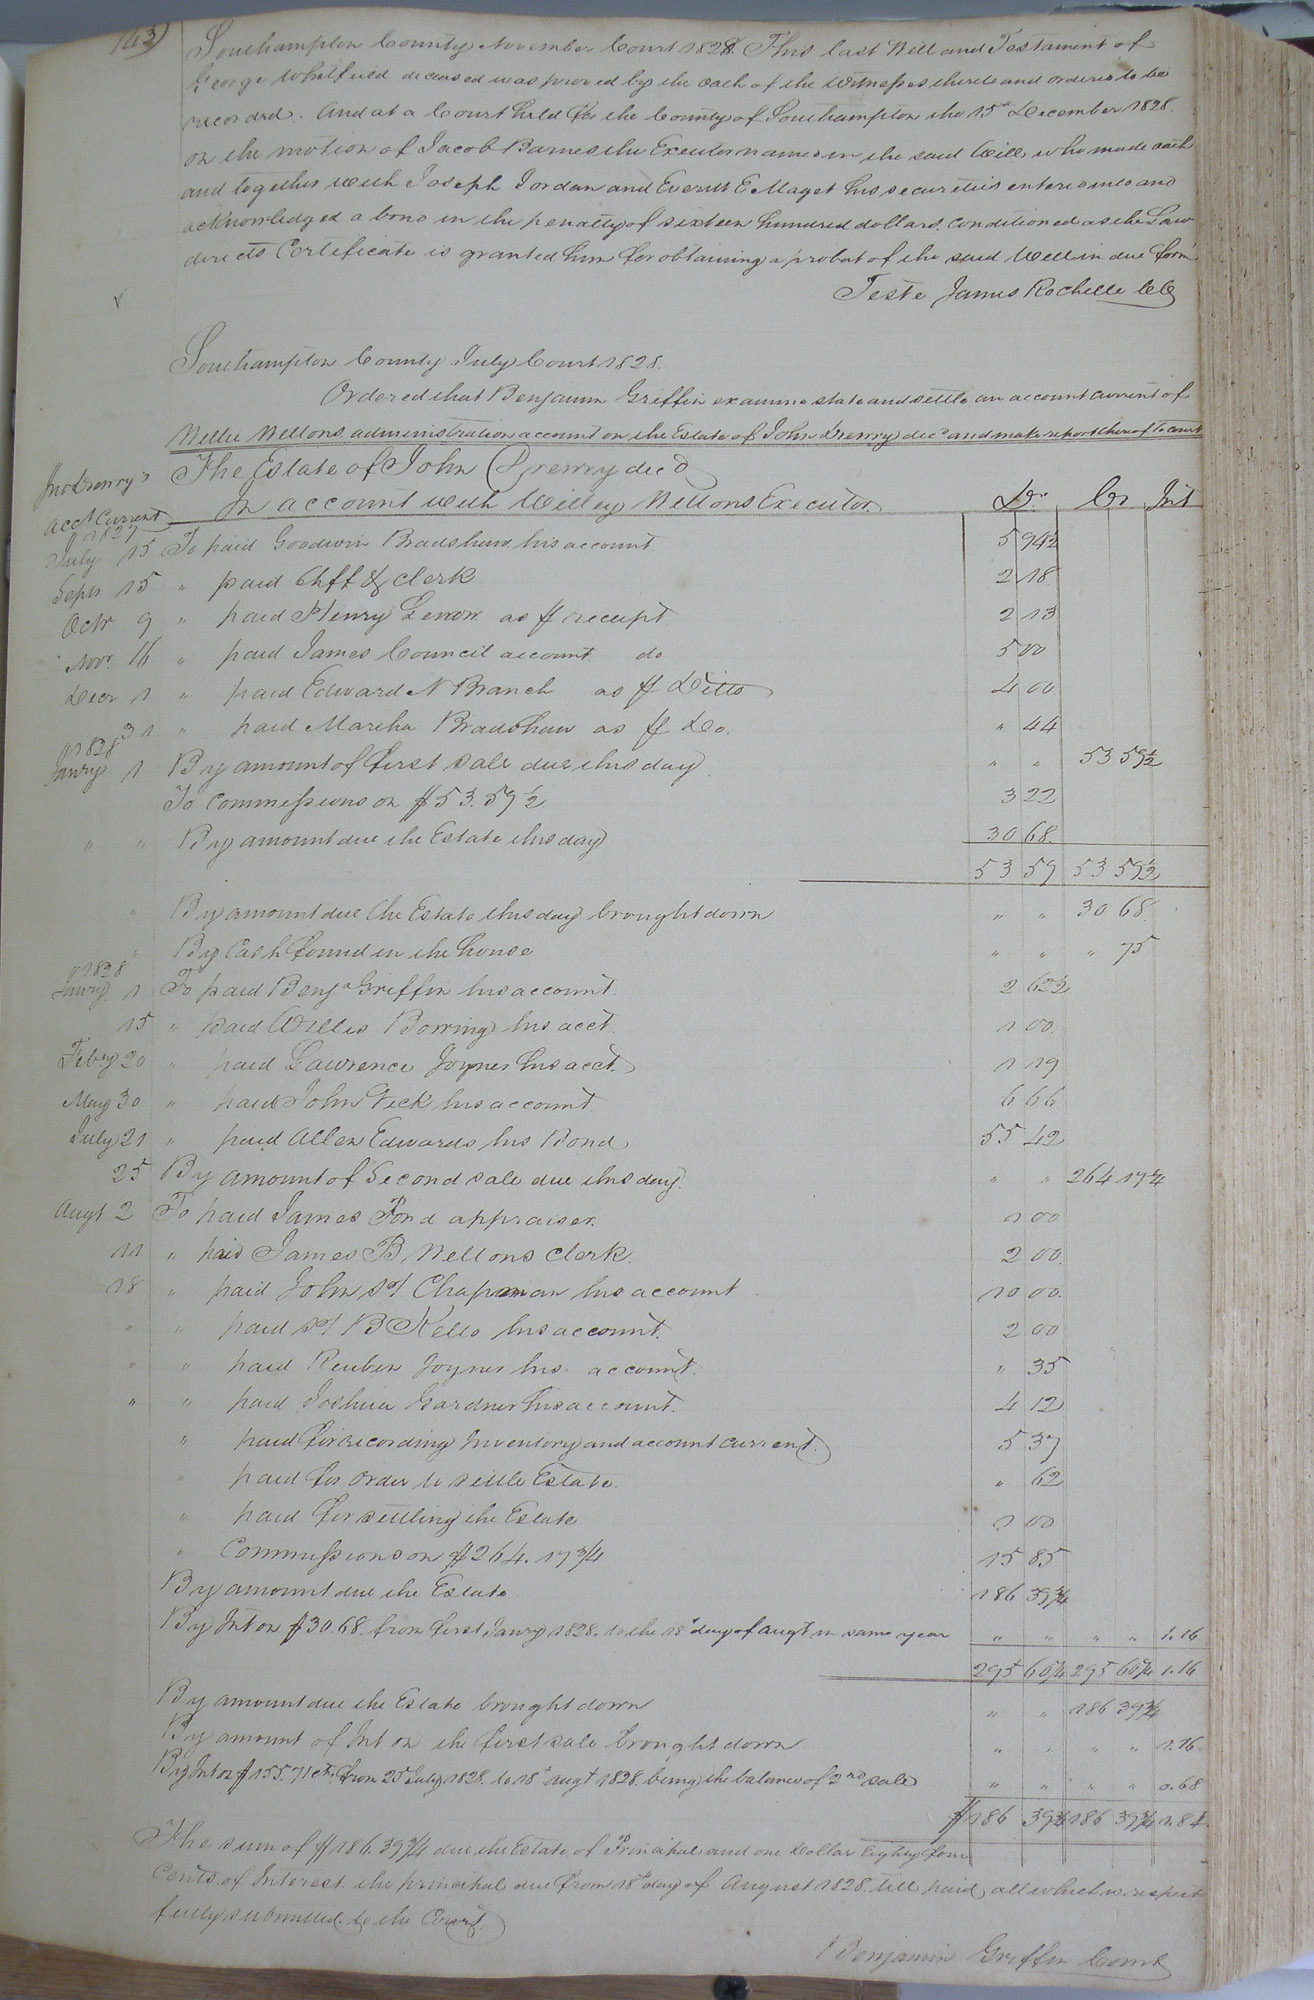 163)
Southampton County November Court 1828. This last Will and Testament of
George Whitfield deceased was proved by the oath of the Witnesses thereto and ordered to be
recorded. And at a Court held for the County of Southampton the 15th December 1828.
on the motion of Jacob Barnes the Executor named in the said Will who made oath
and together with Joseph Jordan and Everitt E Maget his securities entered into and
acknowledged a bond in the penalty of sixteen hundred dollars conditioned as the Law
directs Certificate is granted him for obtaining a probat of the said Will in due form
Teste James Rochelle CC
Southampton County July Court 1828.
Ordered that Benjamin Griffin examine state and settle an account current of
Willie Wellons administration account on the Estate of John Drewry decd and make report thereof to court
Jno Drewry's acct Current
The Estate of John Drewry decd
In account with Willey Wellons Executor. Dr Cr Int
1827
July 15 To paid Goodwin Bradshaw his account 5 94½
Septr 15 " paid Shff & Clerk 2 18
Octr 9 " paid Henry as receipt 2 13
Novr 16 " paid James Council account do 5 00
Decr 1 " paid Edward N Branch as Ditto 4 00
31 " paid Martha Bradshaw as Do. " 44
1828
Janry 1 By amount of first sale due this day " " 53 59½
To commissions on $53.59½ 3 22
" " By amount due the Estate this day 30 68.
53 59 53 59½
" By amount due the Estate this day brought down " " 30 68
" By Cash found in the house " " " 75
1828
Janry 1 To paid Benja Griffin his account. 2 62½
15 " paid Willis Borring his acct. 1 00
Febry 20 " paid Lawrence Joyner his acct. 1 19
May 30 " paid John Vick his account 6 66
July 21 " paid Allen Edwards his Bond 55 42
25 By amount of Second sale due this day. " " 264 17¾
Augt 2 To paid James Pond appraiser. 1 00
11 " paid James B, Wellons Clerk. 2 00
18 " paid John W Chapman his account 10 00.
" " paid W B Kello his account. 2 00
" " paid Reuben Joyner his account. " 35
" " paid Joshua Gardner his account. 4 12
" paid for recording Inventory and account current. 5 37
" paid for order to settle Estate. " 62
" paid for settling the Estate 1 00
" Commissions on $264.17¾ 15 85
By amount due the Estate 186 39¾
By Int on $30.68. from first Janry 1828. to the 18th day of Augt in same year " " " " 1.16
295 60¾ 295 60¾ 1.16
By amount due the Estate brought down " " 186 39¾
By amount of Int on the first sale brought down " " " " 1.16
By Int on $155.71 cts. from 25th July 1828. to 18th Augt 1828. being the balance of 2nd sale " " " " 0.68
$186 39¾ 186 39¾ 1.84
The sum of $186.39¾ due the Estate of Principal and one Dollar Eighty four
Cents of Interest the principal due from 18th day of August 1828. till paid, all which is respect
fully submitted to the Court.
Benjamin Griffin Comr